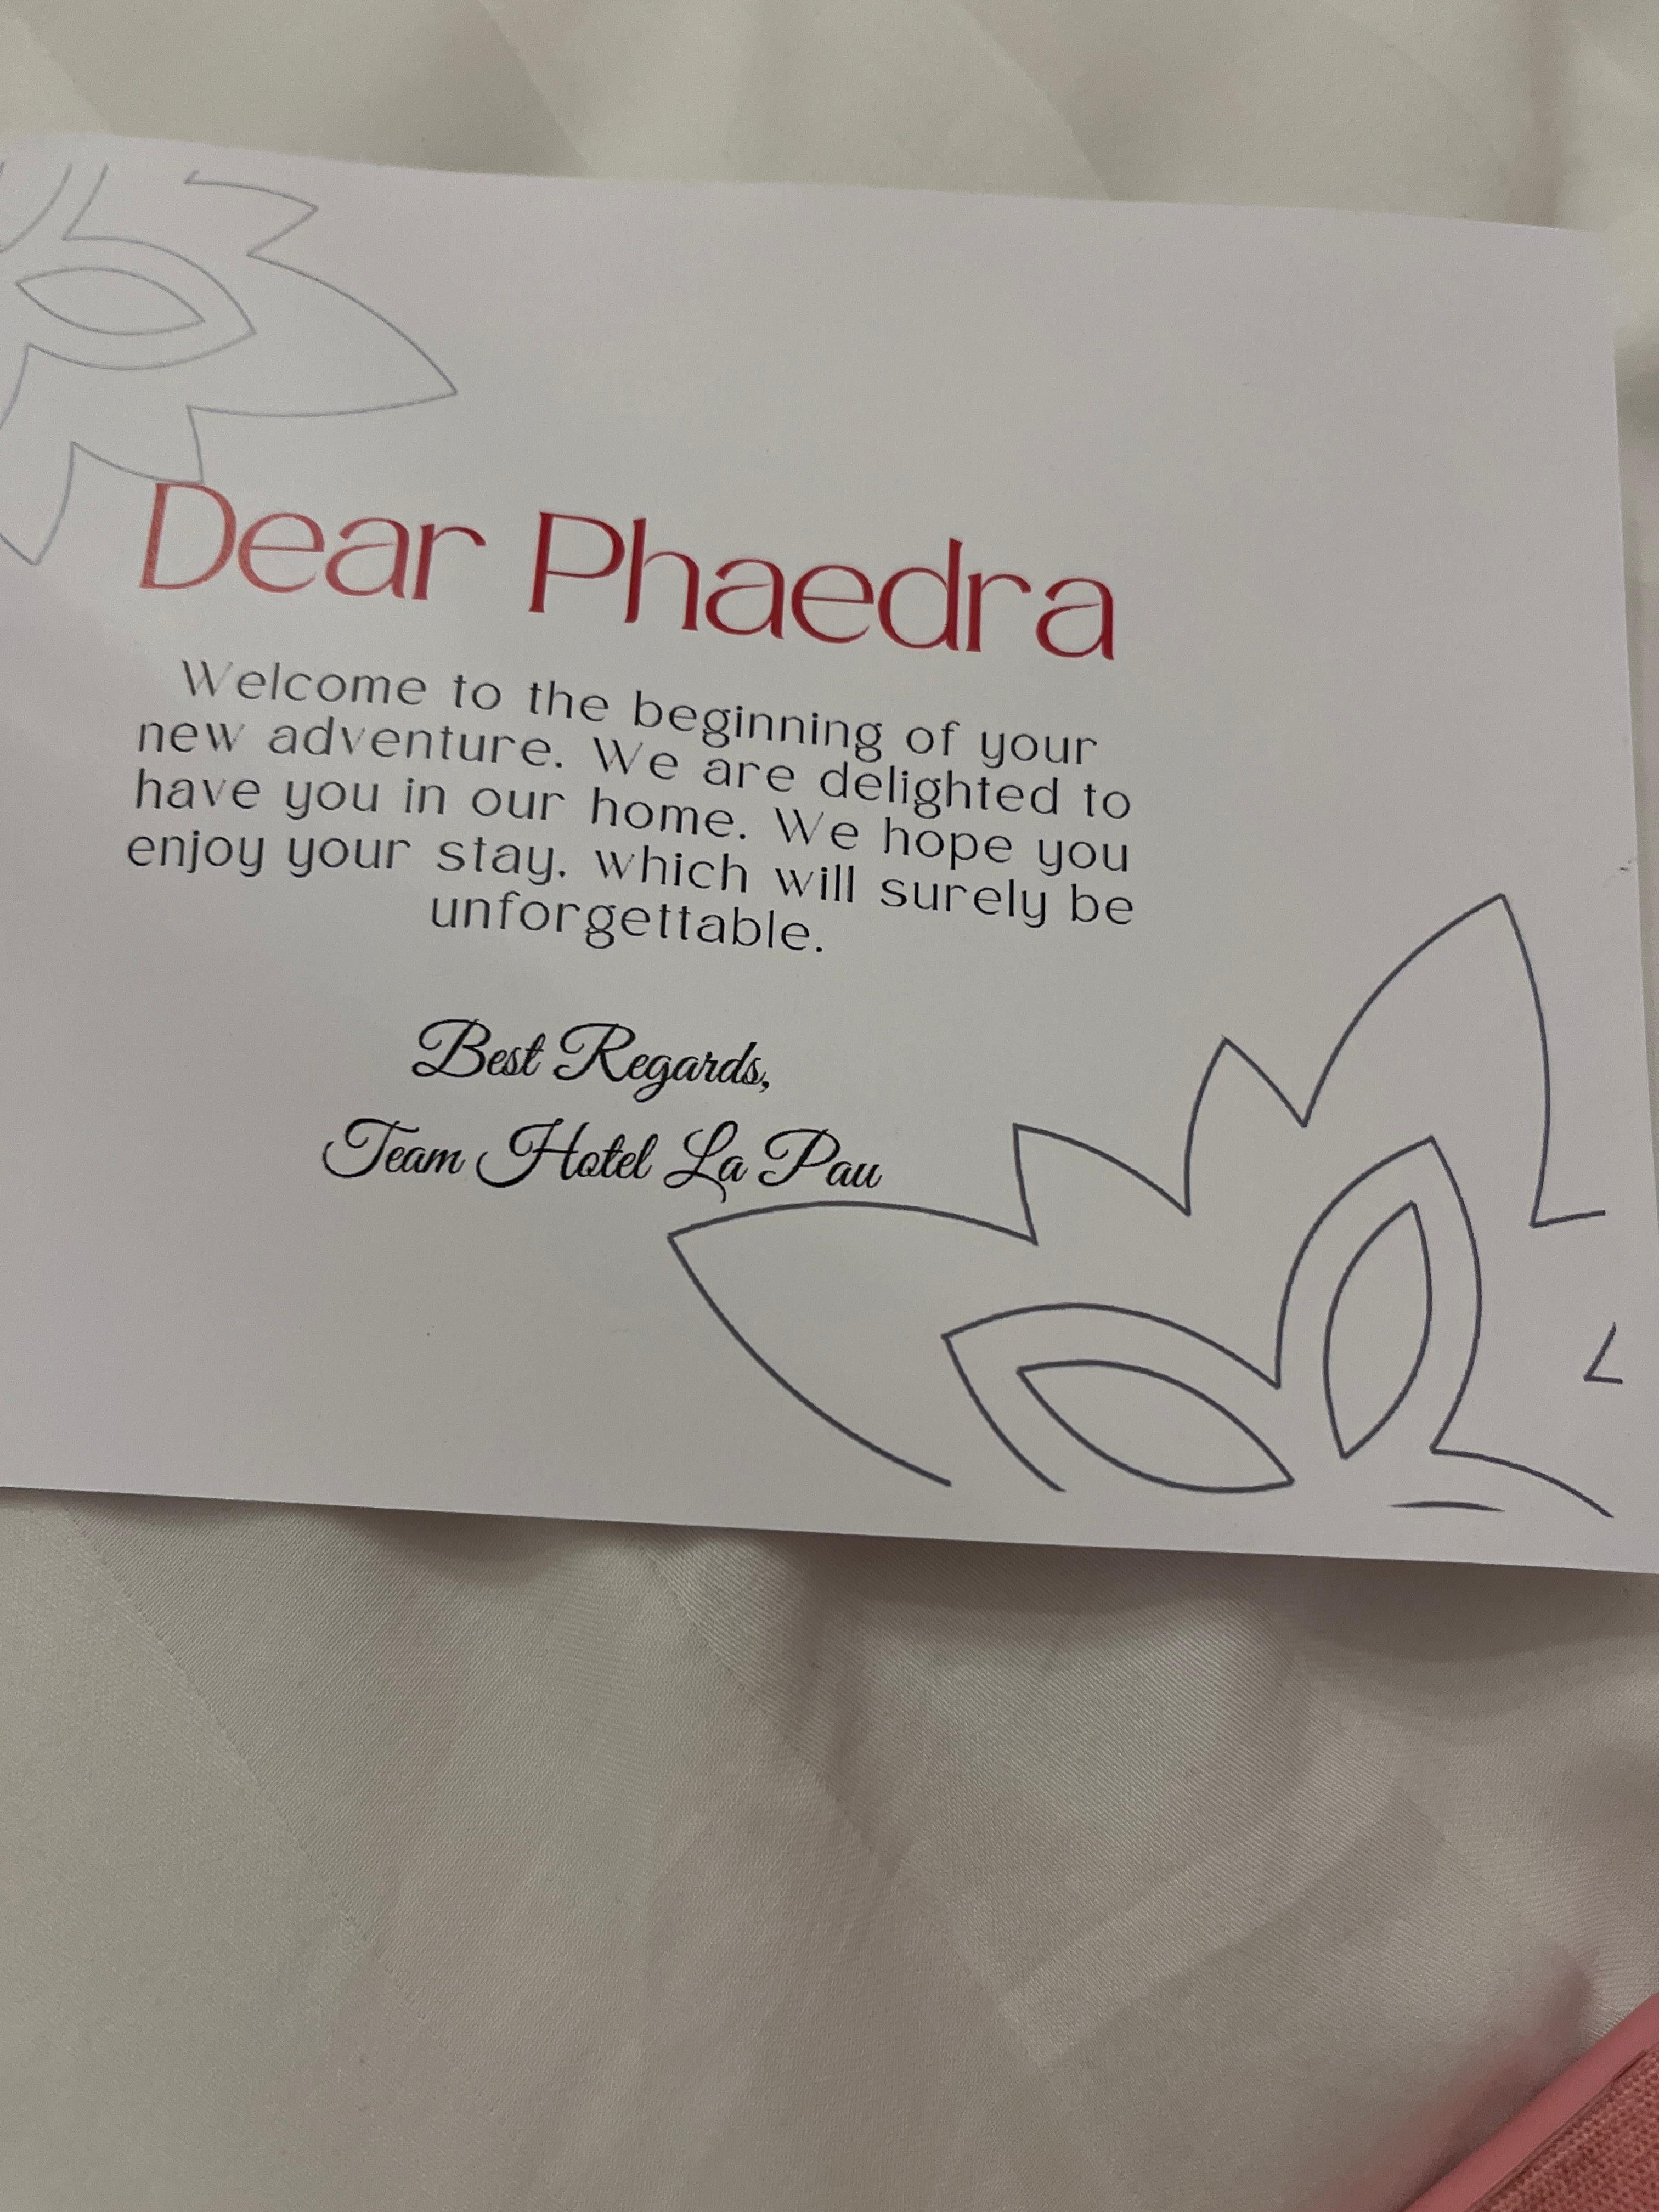 Dear Phaedra
Welcome to the beginning of your
new adventure. We are delighted to
have you in our home. We hope you
enjoy your stay, which will surely be
unforgettable.
Best Regards,
Team Hotel La Pau